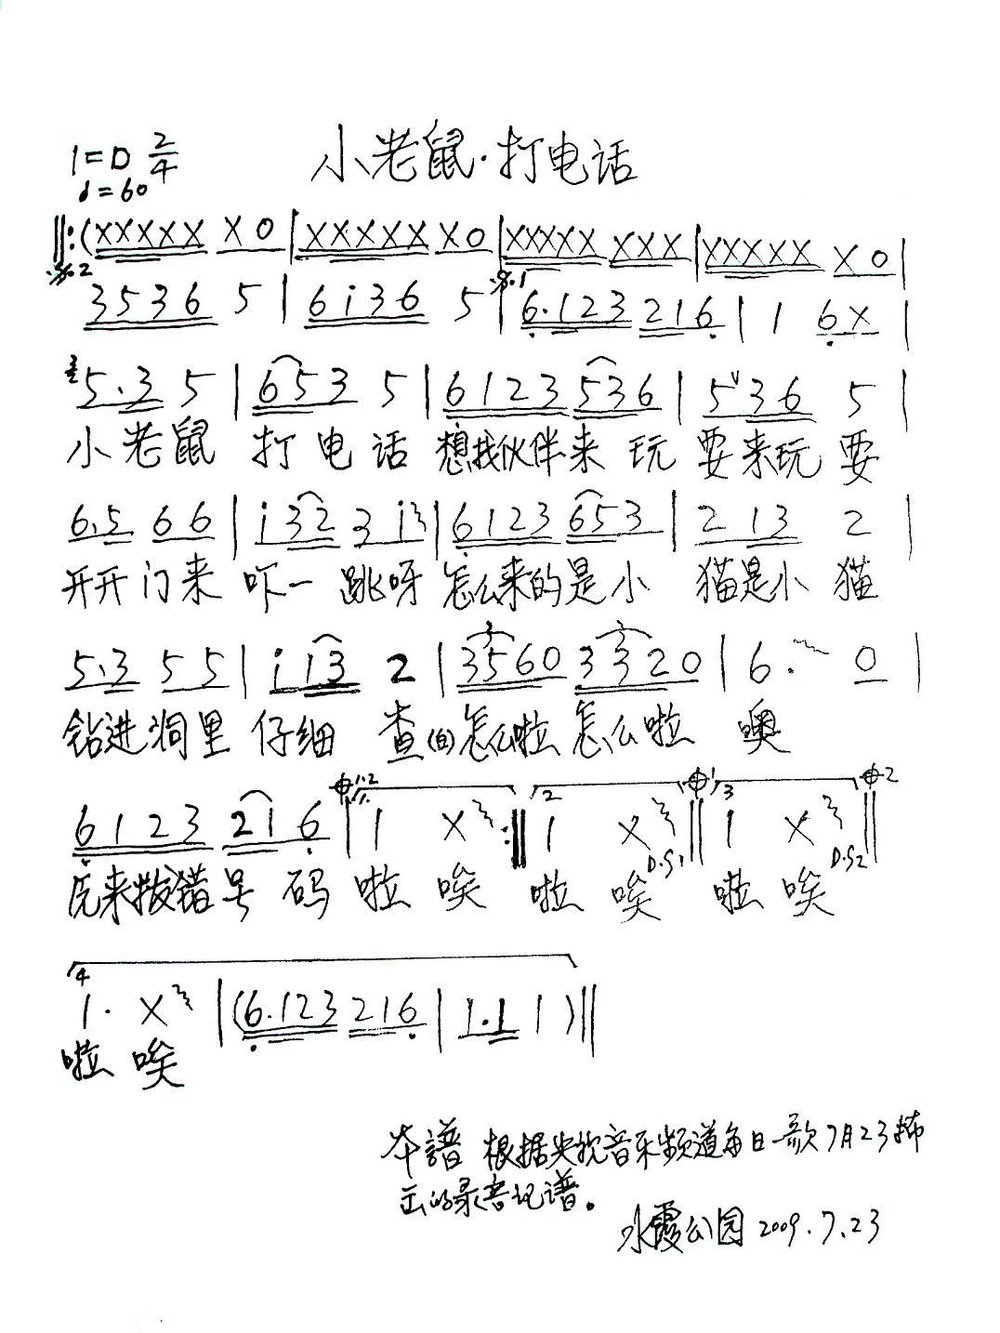 1=D 2/4 小老鼠·打电话
♩=60
‖:(XXXXX X0|XXXXXX X0|XXXXX XXX|XXXXX X0|
3536 5|6i36 5|6·123 216|1 6X|
5·3 5|653 5|6123 536|5∨36 5|
小老鼠 打电话 想找伙伴来玩耍来玩耍
6·5 66|i32 3i|6123 653|2 13 2|
开开门来 吓一跳呀 怎么来的是小 猫是小猫
5·3 55|i13 2|3560 3320|6· 0|
钻进洞里 仔细 查(由)怎么啦 怎么啦 噢
6123 216|1 X:‖1 X‖1 X‖
原来拨错号码啦 唉 啦 唉 啦 唉
1· X|(6·123 216|1·1 1)‖
啦 唉
本譜 根据央视音乐频道每日一歌7月23播
出的录音记谱。
水霞公园 2009.7.23